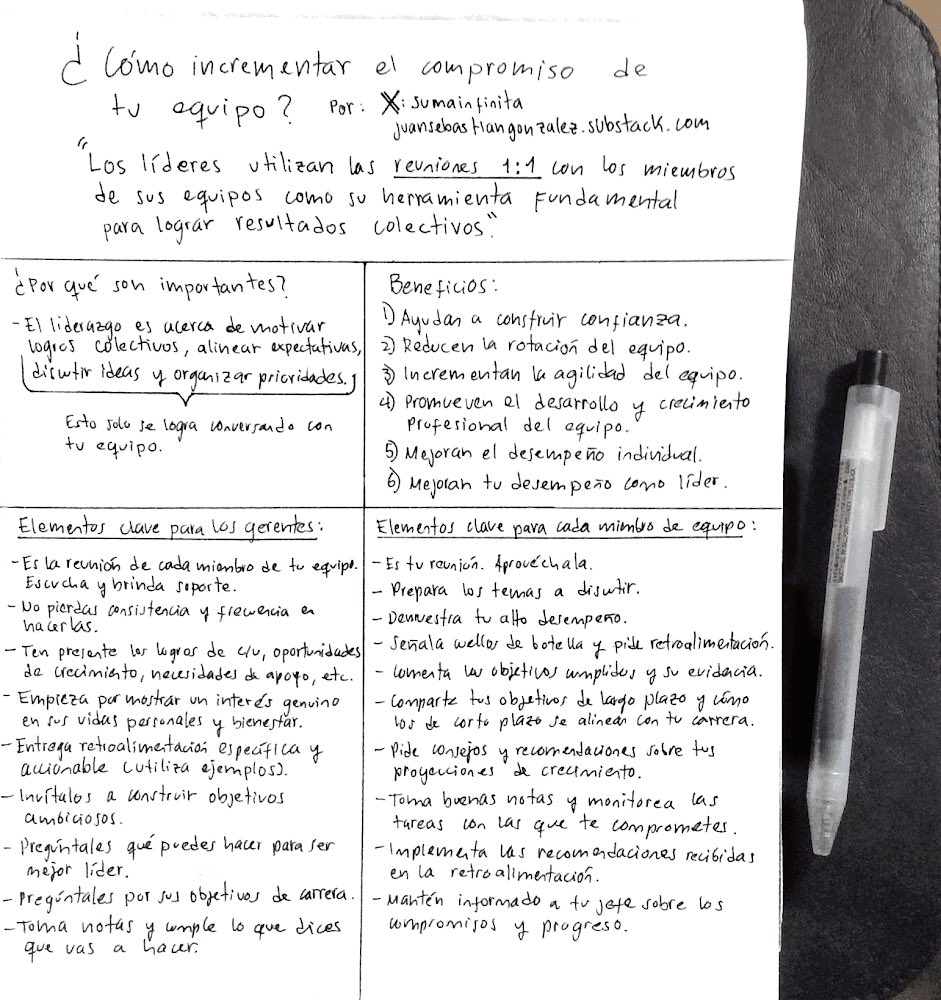 ¿Cómo incrementar el compromiso de
tu equipo? Por: X: sumainfinita
juansebastiangonzalez.substack.com
"Los líderes utilizan las reuniones 1:1 con los miembros
de sus equipos como su herramienta fundamental
para lograr resultados colectivos".
¿Por qué son importantes?
- El liderazgo es acerca de motivar
logros colectivos, alinear expectativas,
discutir ideas y organizar prioridades.
Esto solo se logra conversando con
tu equipo.
Beneficios:
1) Ayudan a construir confianza.
2) Reducen la rotación del equipo.
3) Incrementan la agilidad del equipo.
4) Promueven el desarrollo y crecimiento
profesional del equipo.
5) Mejoran el desempeño individual.
6) Mejoran tu desempeño como líder.
Elementos clave para los gerentes:
- Es la reunión de cada miembro de tu equipo.
Escucha y brinda soporte.
- No pierdas consistencia y frecuencia en
hacerlas.
- Ten presente los logros de c/u, oportunidades
de crecimiento, necesidades de apoyo, etc.
- Empieza por mostrar un interés genuino
en sus vidas personales y bienestar.
- Entrega retroalimentación específica y
accionable (utiliza ejemplos).
- Invítalos a construir objetivos
ambiciosos.
- Pregúntales qué puedes hacer para ser
mejor líder.
- Pregúntales por sus objetivos de carrera.
- Toma notas y cumple lo que dices
que vas a hacer.
Elementos clave para cada miembro de equipo:
- Es tu reunión. Aprovéchala.
- Prepara los temas a discutir.
- Demuestra tu alto desempeño.
- Señala cuellos de botella y pide retroalimentación.
- Comenta los objetivos cumplidos y su evidencia.
- Comparte tus objetivos de largo plazo y cómo
los de corto plazo se alinean con tu carrera.
- Pide consejos y recomendaciones sobre tus
proyecciones de crecimiento.
- Toma buenas notas y monitorea las
tareas con las que te comprometes.
- Implementa las recomendaciones recibidas
en la retroalimentación.
- Mantén informado a tu jefe sobre los
compromisos y progreso.